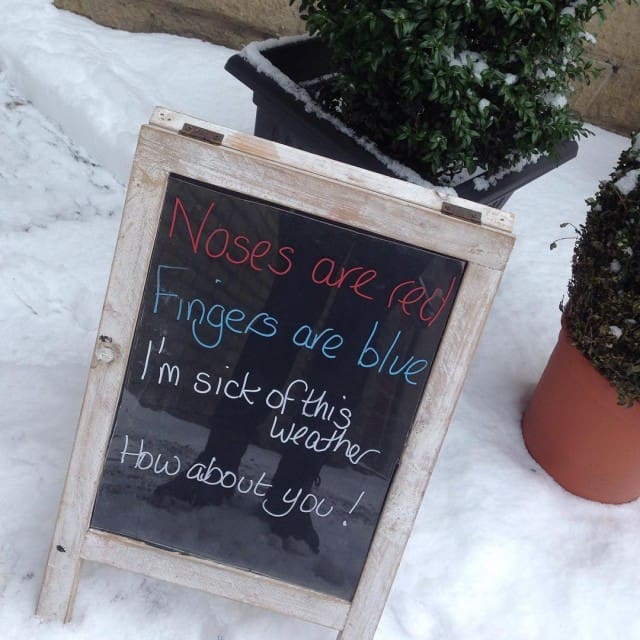 Noses are red
Fingers are blue
I'm sick of this
weather
How about you!